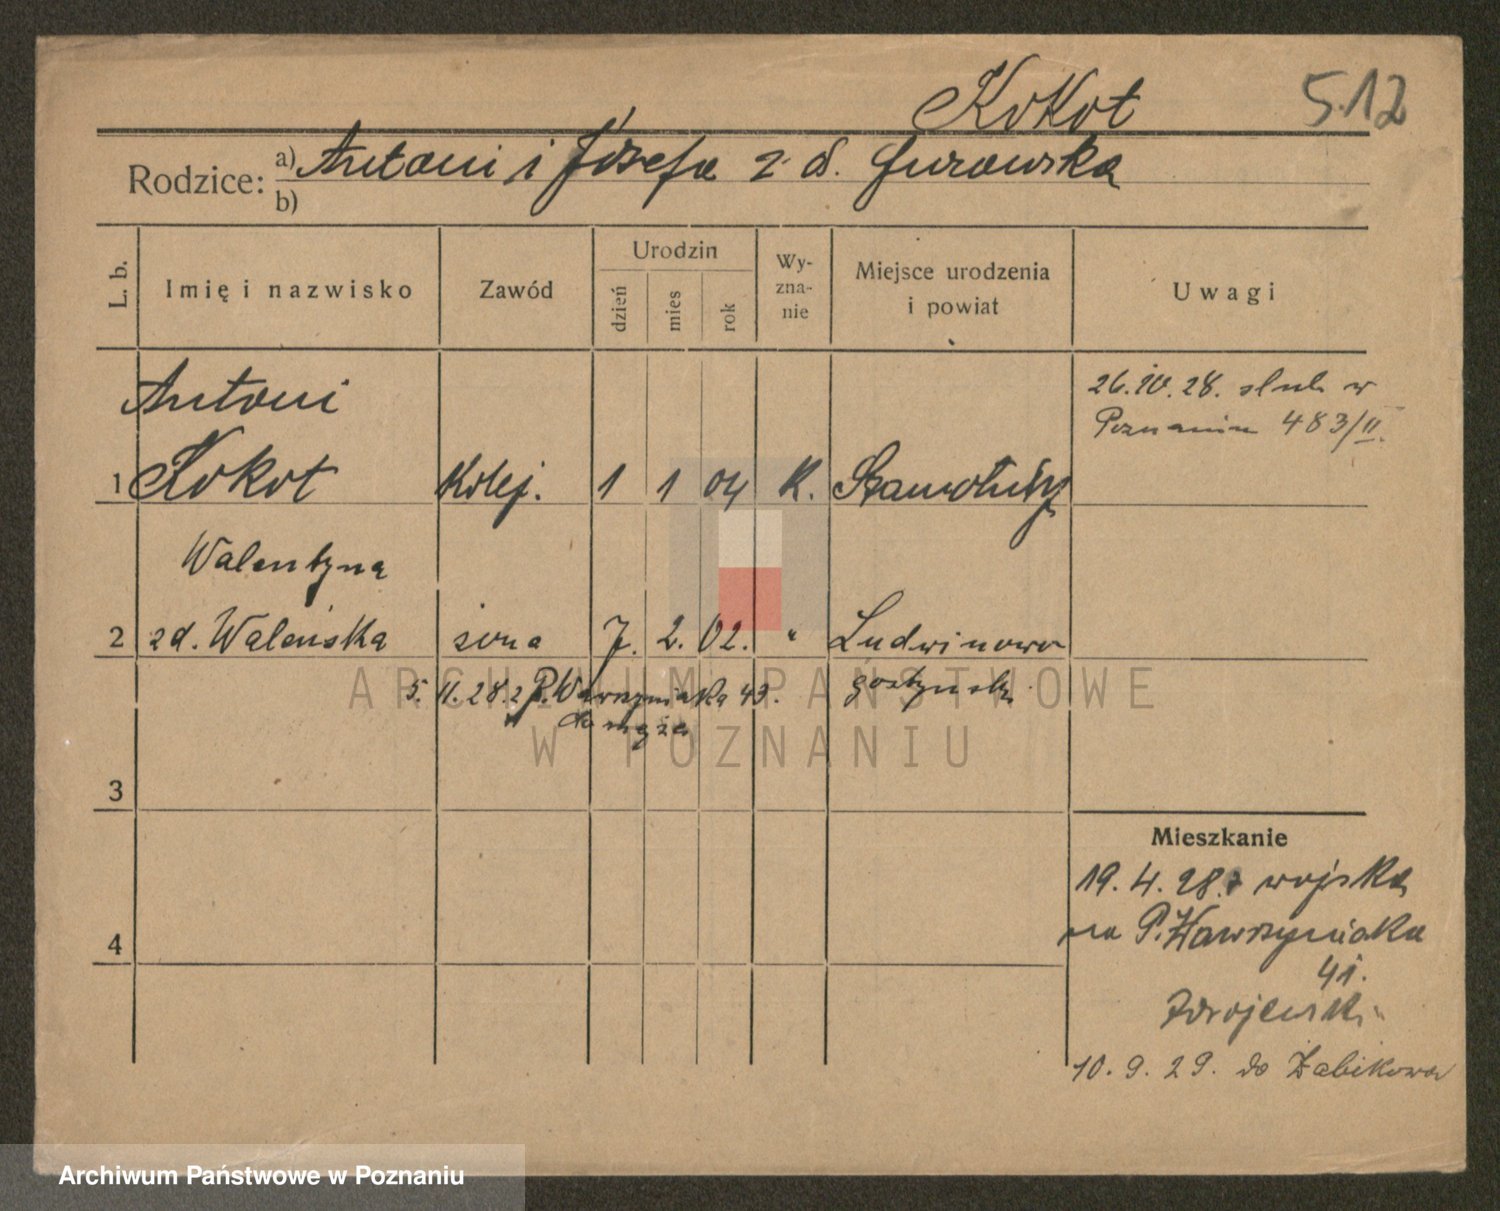 Kokot
5.12
Rodzice: a) Antoni i Józefa z d. Gurowska
b)
L. b.
Imię i nazwisko
Zawód
Urodzin
dzień
mies
rok
Wy-
zna-
nie
Miejsce urodzenia
i powiat
Uwagi
Antoni
1 Kokot Kolej. 1 1 04 K. Szamotuły
26.IV.28. slub w
Poznaniu 483/II.
Walentyna
2 zd. Waleńska żona 7. 2. 02. " Ludwinowo
gostyński
5. II. 28. z P. Wawrzyniaka 43.
do męża
3
4
Mieszkanie
19. 4. 28. z wojska
na P. Wawrzyniaka
41.
Zdrojewski
10. 9. 29. do Żabikowa
ARCHIWUM PAŃSTWOWE
W POZNANIU
Archiwum Państwowe w Poznaniu